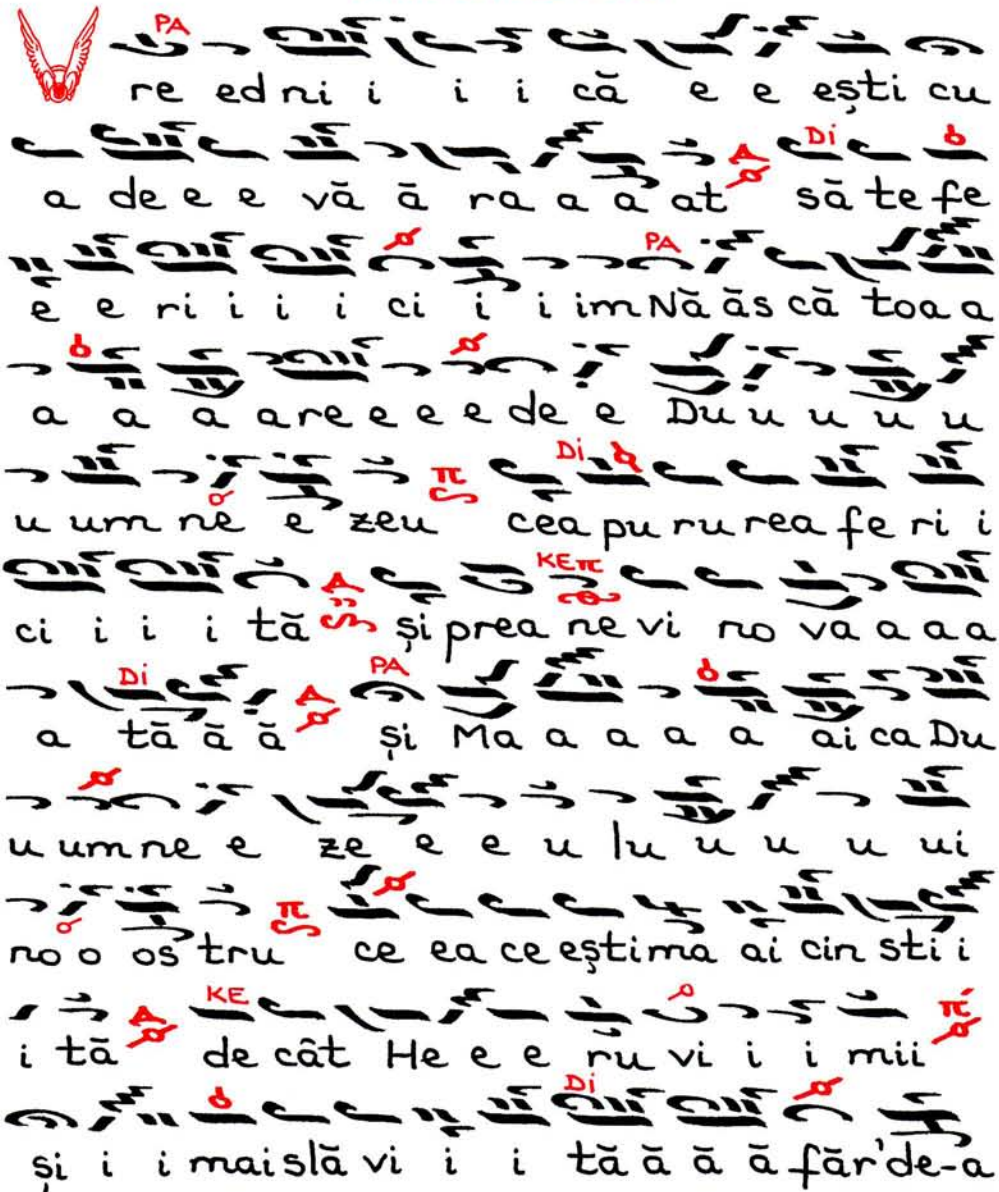 PA
re ed ni i i i că e e ești cu
Di
a de e e vă ă ra a a at să te fe
PA
e e ri i i i ci i i im Nă ăs că toa a
a a a a re e e e de e Du u u u u
Di π
u um ne e zeu cea pu ru rea fe ri i
KE π
ci i i i tă și prea ne vi no va a a a
Di PA
a tă ă ă și Ma a a a a ai ca Du
u um ne e ze e e u lu u u u ui
π
no o os tru ce ea ce ești ma ai cin sti i
KE π
i tă de cât He e e ru vi i i mii
Di
și i i mai slă vi i i tă ă ă ă făr'de-a